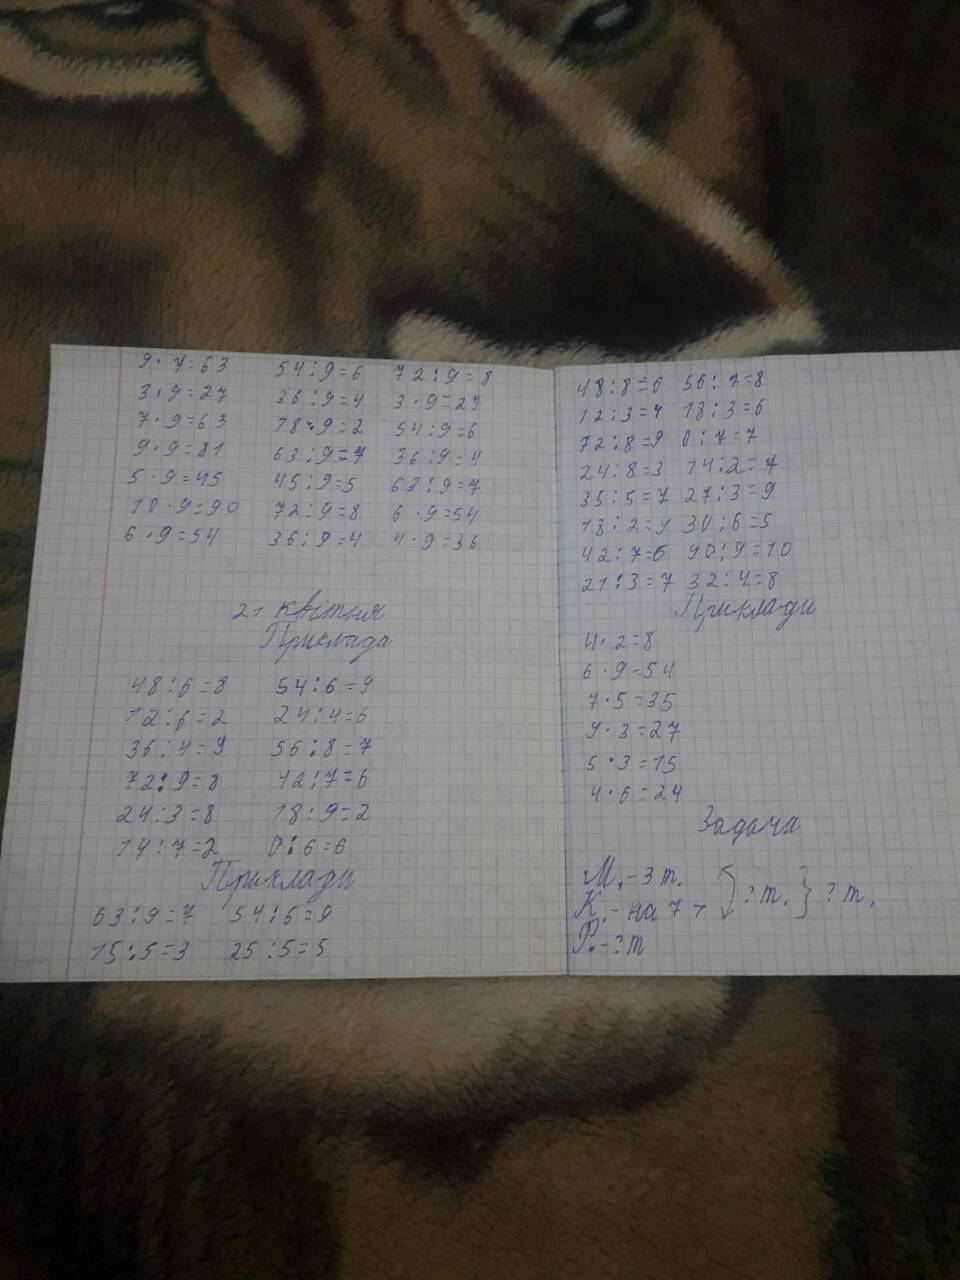 9 · 7 = 63 54 : 9 = 6 72 : 9 = 8
3 · 9 = 27 36 : 9 = 4 3 · 9 = 27
7 · 9 = 63 18 : 9 = 2 54 : 9 = 6
9 · 9 = 81 63 : 9 = 7 36 : 9 = 4
5 · 9 = 45 45 : 9 = 5 63 : 9 = 7
10 · 9 = 90 72 : 9 = 8 6 · 9 = 54
6 · 9 = 54 36 : 9 = 4 4 · 9 = 36
21 квітня
Приклада
48 : 6 = 8 54 : 6 = 9
12 : 6 = 2 24 : 4 = 6
36 : 4 = 9 56 : 8 = 7
72 : 9 = 8 42 : 7 = 6
24 : 3 = 8 18 : 9 = 2
14 : 7 = 2 0 : 6 = 6
Приклади
63 : 9 = 7 54 : 6 = 9
15 : 5 = 3 25 : 5 = 5
48 : 8 = 6 56 : 7 = 8
12 : 3 = 4 18 : 3 = 6
72 : 8 = 9 0 : 7 = 7
24 : 8 = 3 14 : 2 = 7
35 : 5 = 7 27 : 3 = 9
18 : 2 = 9 30 : 6 = 5
42 : 7 = 6 90 : 9 = 10
21 : 3 = 7 32 : 4 = 8
Приклади
4 · 2 = 8
6 · 9 = 54
7 · 5 = 35
9 · 3 = 27
5 · 3 = 15
4 · 6 = 24
Задача
М. - 3 т.
К. - на 7 > ? т. } ? т.
Р. - ? т